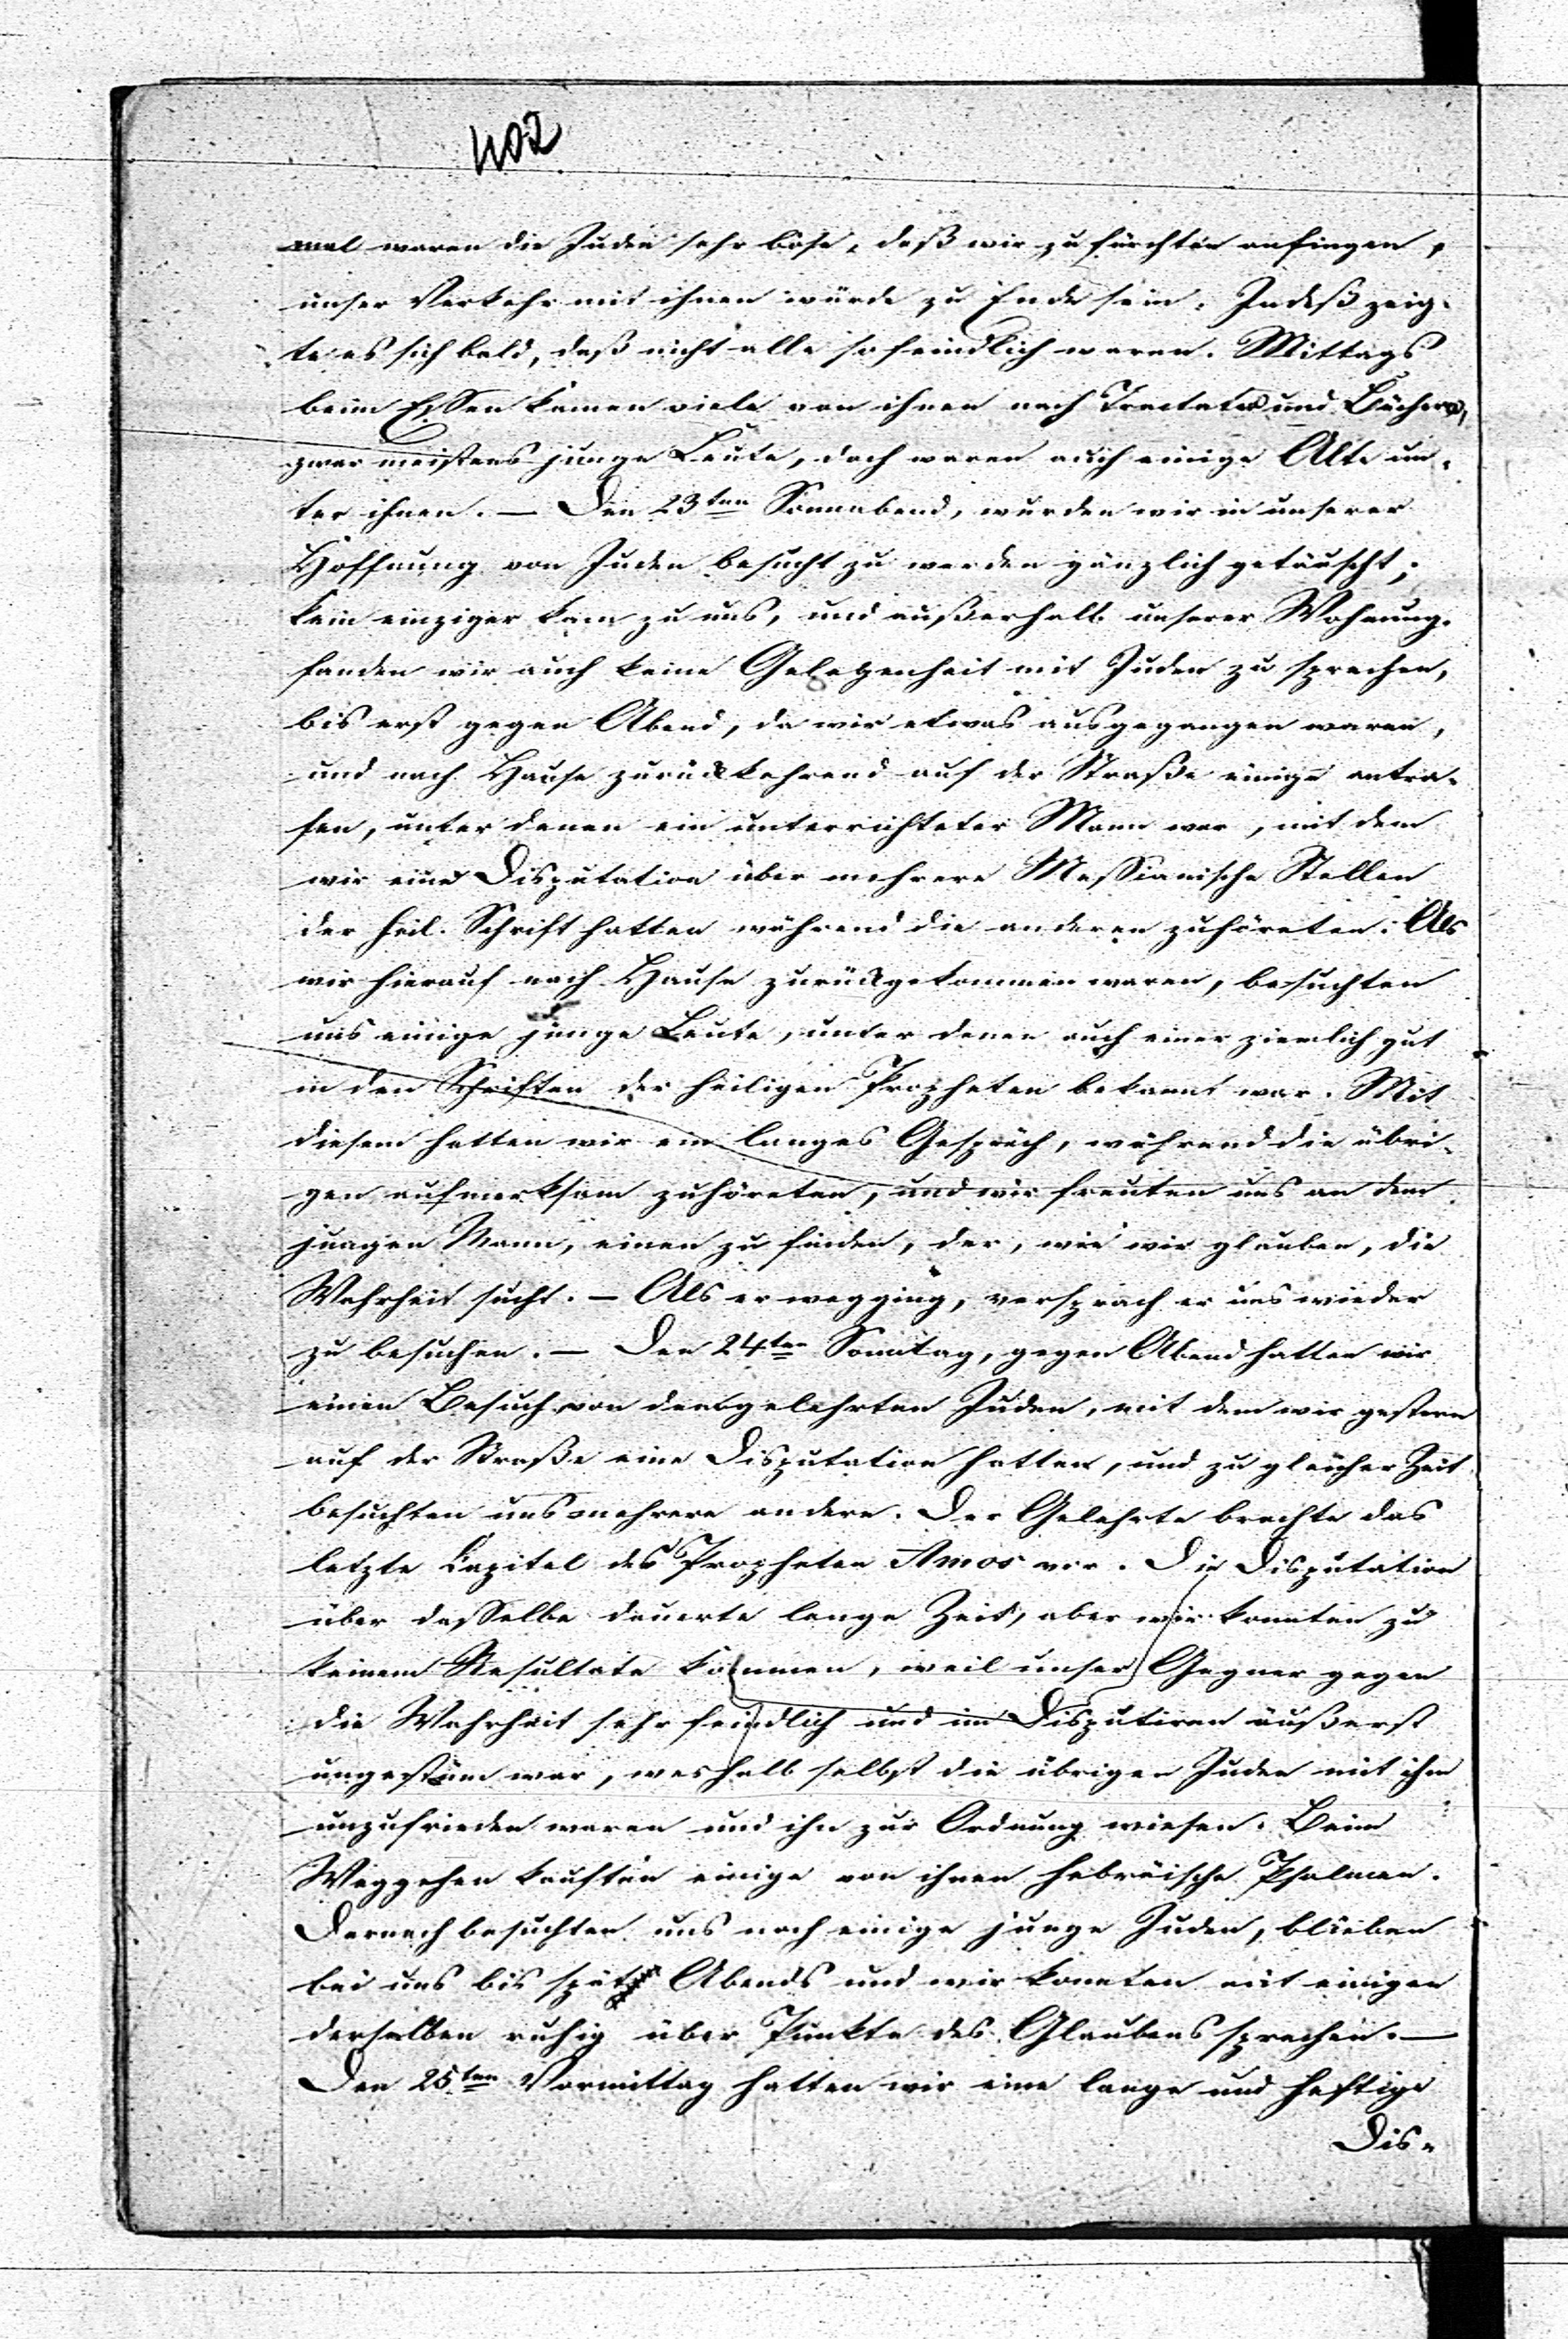 402
mal waren die Juden sehr böse, daß wir zu fürchten anfingen,
unser Verkehr mit ihnen würde zu Ende sein. Indeß zeig-
te es sich bald, daß nicht alle so feindlich waren. Mittags
beim Essen kamen viele von ihnen nach Tractaten und Büchern,
zwar meistens junge Leute, doch waren auch einige Alte un-
ter ihnen. — Den 23ten Sonnabend, wurden wir in unserer
Hoffnung von Juden besucht zu werden gänzlich getäuscht;
kein einziger kam zu uns, und außerhalb unserer Wohnung
fanden wir auch keine Gelegenheit mit Juden zu sprechen,
bis erst gegen Abend, da wir etwas ausgegangen waren,
und nach Hause zurückkehrend auf der Straße einige antra-
fen, unter denen ein unterrichteter Mann war, mit dem
wir eine Disputation über mehrere Messianische Stellen
der heil. Schrift hatten während die anderen zuhöreten. Als
wir hierauf nach Hause zurückgekommen waren, besuchten
uns einige junge Leute, unter denen auch einer ziemlich gut
in den Schriften der heiligen Propheten bekannt war. Mit
diesem hatten wir ein langes Gespräch, während die übri-
gen aufmerksam zuhöreten, und wir freuten uns an dem
jungen Mann, einen zu finden, der, wie wir glauben, die
Wahrheit sucht. — Als er wegging, versprach er uns wieder
zu besuchen. — Den 24ten Sonntag, gegen Abend hatten wir
einen Besuch von dem gelehrten Juden, mit dem wir gestern
auf der Straße eine Disputation hatten, und zu gleicher Zeit
besuchten uns mehrere andere. Der Gelehrte brachte das
letzte Capitel des Propheten Amos vor. Die Disputation
über dasselbe dauerte lange Zeit, aber wir konnten zu
keinem Resultate kommen, weil unser Gegner gegen
die Wahrheit sehr feindlich und im Disputiren äußerst
ungestüm war, weshalb selbst die übrigen Juden mit ihm
unzufrieden waren und ihn zur Ordnung wiesen. Beim
Weggehen kauften einige von ihnen hebräische Psalmen.
Darnach besuchten uns noch einige junge Juden, blieben
bei uns bis spät Abends und wir konnten mit einigen
derselben ruhig über Punkte des Glaubens sprechen. —
Den 25ten Vormittag hatten wir eine lange und heftige
Dis-